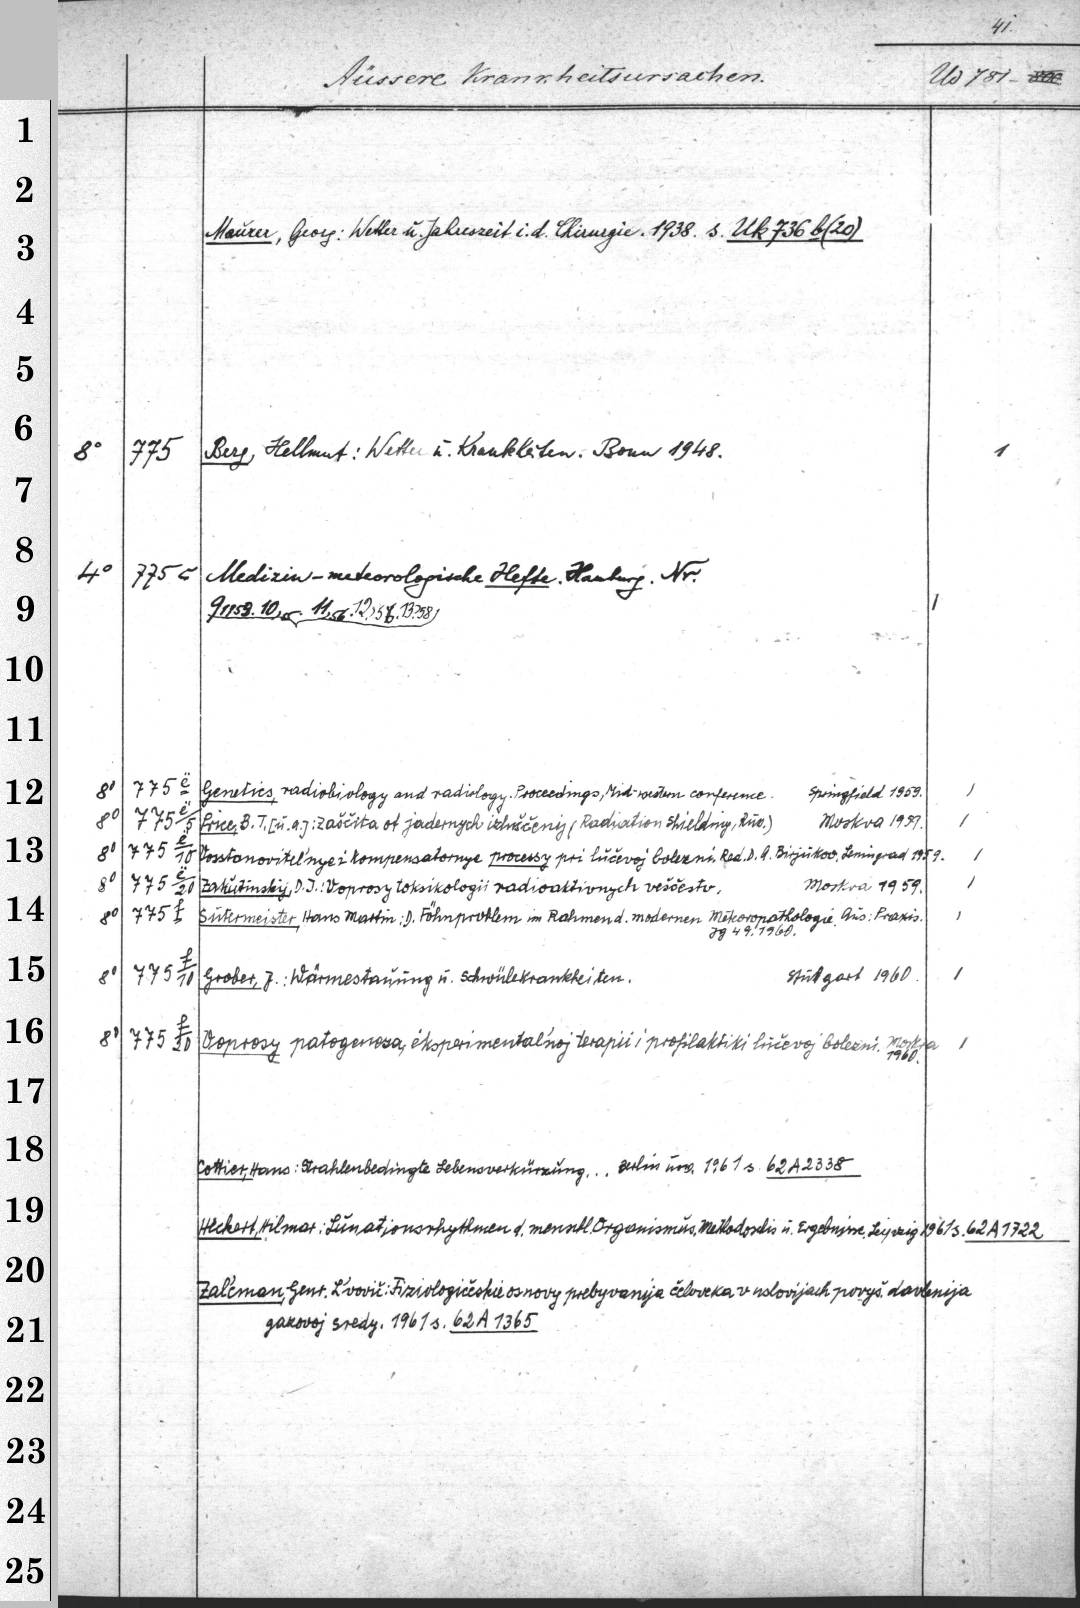 41.
Äussere Krankheitsursachen. Us 781-
1
2
Maurer, Georg: Wetter u. Jahreszeit i. d. Chirurgie. 1938. s. Uk 736 b (20)
3
4
5
6
8° 775 Berg, Hellmut: Wetter u. Krankheiten. Bonn 1948. 1
7
8
4° 775 c Medizin-meteorologische Hefte. Hamburg. Nr.
9 1953. 10, 11, 56. 12, 57. 13, 58, 1
9
10
11
12
8° 775 e Genetics, radiobiology and radiology. Proceedings, Mid-western conference. Springfield 1959. 1
8° 775 e/5 Price, B. T. [u. a.]: Zaščita ot jadernych izlučenij (Radiation Shielding, Russ.) Moskva 1959. 1
13
8° 775 e/10 Vosstanovitel'nye i kompensatornye processy pri lučevoj bolezni. Red. D. A. Birjukov. Leningrad 1959. 1
8° 775 e/20 Zakutinskij, D. I.: Voprosy toksikologii radioaktivnych veščestv. Moskva 1959. 1
14
8° 775 f Sutermeister, Hans Martin: D. Föhnproblem im Rahmen d. modernen Meteoropathologie. Aus: Praxis. 1
Jg 49. 1960.
15
8° 775 f/10 Grober, J.: Wärmestauung u. Schwülekrankheiten. Stuttgart 1960. 1
16
8° 775 f/20 Voprosy patogeneza, éksperimental'noj terapii i profilaktiki lučevoj bolezni. Moskva 1
1960.
17
18
Cottier, Hans: Strahlenbedingte Lebensverkürzung... Berlin usw. 1961 s. 62 A 2338
19
Heckert, Hilmar: Lunationsrhythmen d. menschl. Organismus. Methodisches u. Ergebnisse. Leipzig 1961 s. 62 A 1722
20
Zal'cman, Genr. L'vovič: Fiziologičeskie osnovy prebyvanija čeloveka v uslovijach povyš. davlenija
gazovoj sredy. 1961 s. 62 A 1365
21
22
23
24
25